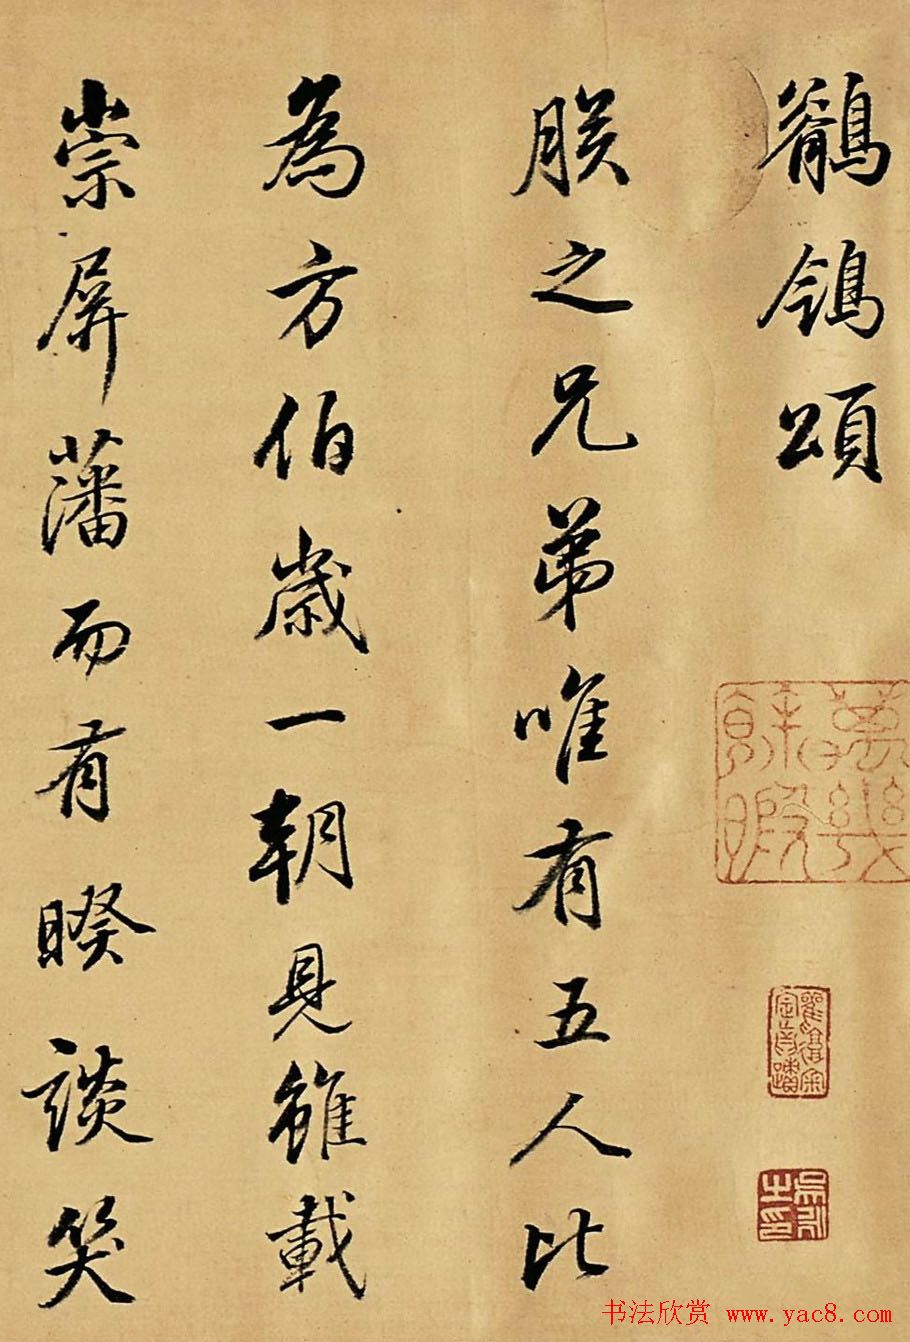 鶺鴒頌
朕之兄弟唯有五人比
為方伯歲一朝見雖載
崇屏藩而有睽談笑
萬幾餘暇
书法欣赏 www.yac8.com